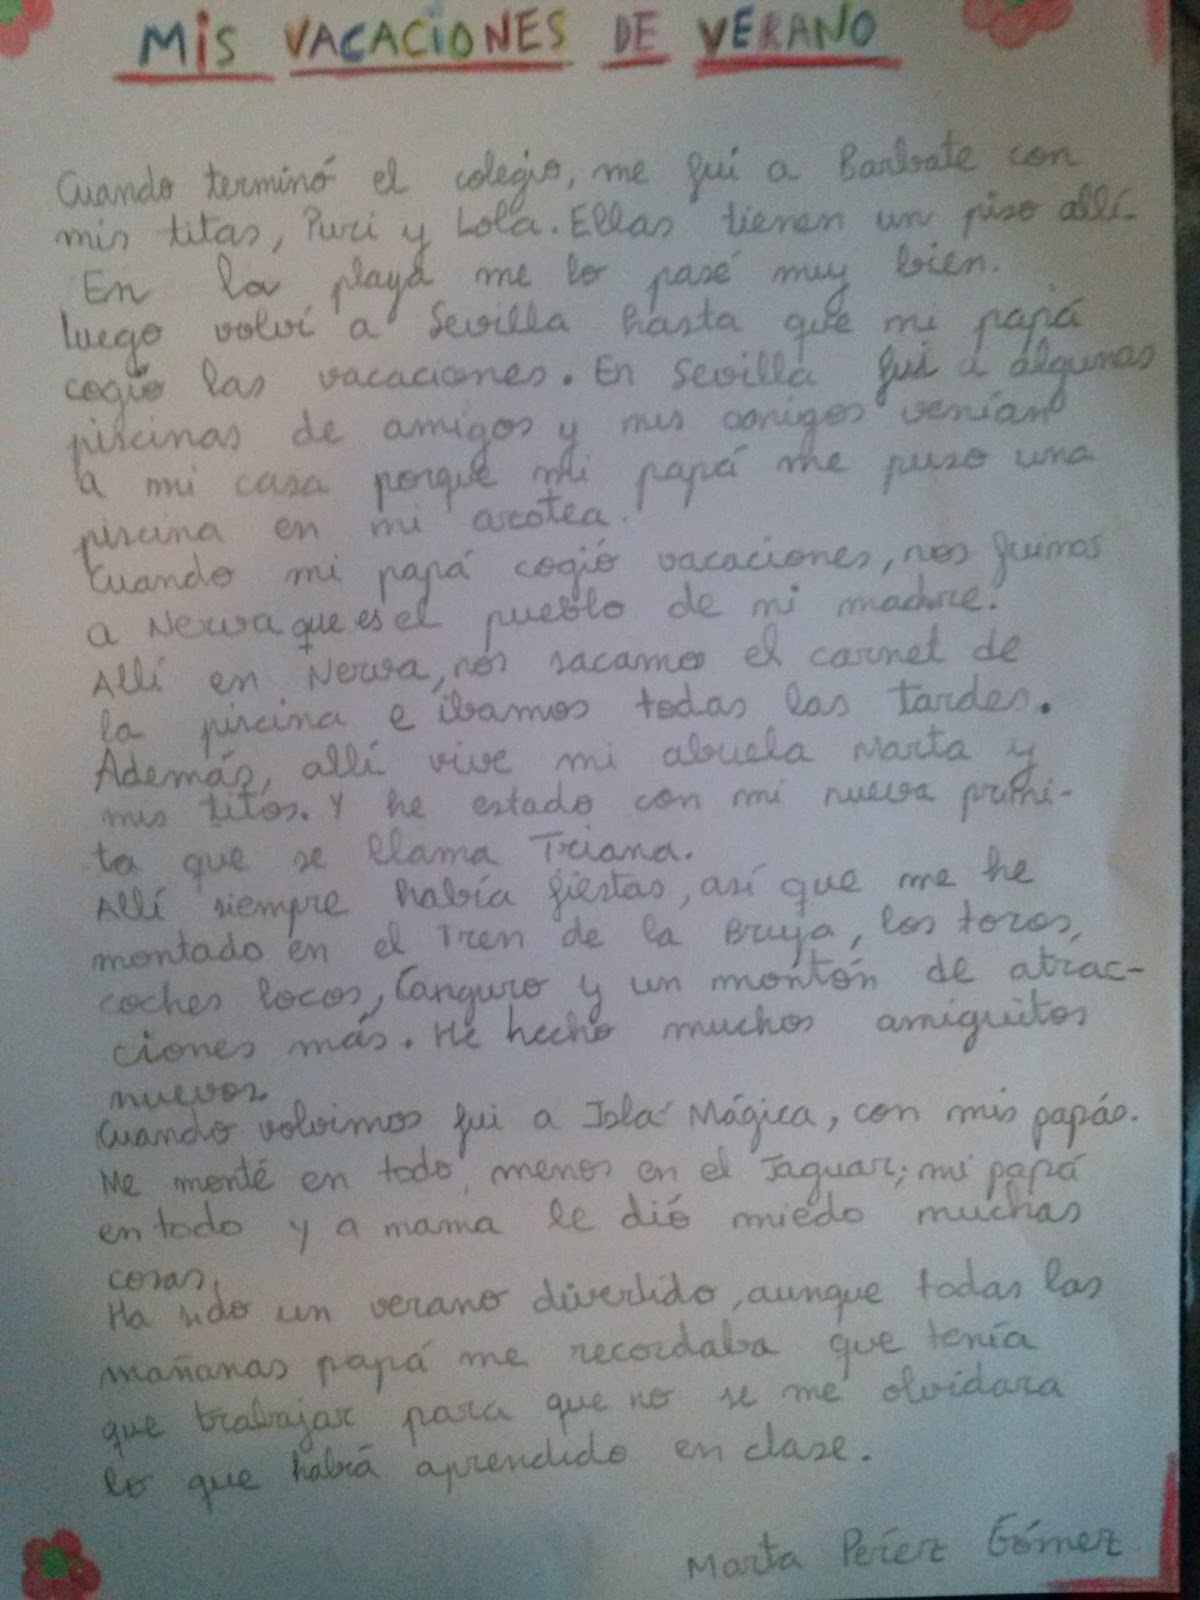 MiS VACACiONES DE VERANO
Cuando terminó el colegio, me fui a Barbate con
mis titas, Puri y Lola. Ellas tienen un piso allí.
En la playa me lo pasé muy bien.
Luego volví a Sevilla hasta que mi papá
cogió las vacaciones. En Sevilla fui a algunas
piscinas de amigos y mis amigos venían
a mi casa porque mi papá me puso una
piscina en mi azotea.
Cuando mi papá cogió vacaciones, nos fuimos
a Nerva que es el pueblo de mi madre.
Allí en Nerva, nos sacamo el carnet de
la piscina e ibamos todas las tardes.
Además, allí vive mi abuela Marta y
mis titos. Y he estado con mi nueva primi-
ta que se llama Triana.
Allí siempre había fiestas, así que me he
montado en el Tren de la Bruja, los toros,
coches locos, Canguro y un montón de atrac-
ciones más. He hecho muchos amiguitos
nuevos.
Cuando volvimos fui a Isla Mágica, con mis papás.
Me monté en todo, menos en el Jaguar; mi papá
en todo y a mama le dió miedo muchas
cosas.
Ha sido un verano divertido, aunque todas las
mañanas papá me recordaba que tenía
que trabajar para que no se me olvidara
lo que habiá aprendido en clase.
Marta Peŕez Gómez